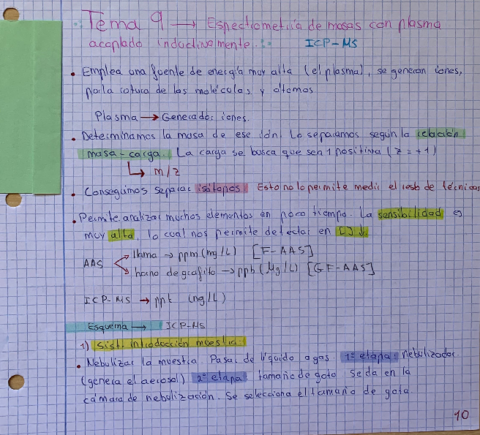 Tema 9 → Espectrometría de masas con plasma
acoplado inductivamente. ICP-MS
• Emplea una fuente de energía muy alta (el plasma), se generan iones,
por la rotura de las moléculas y átomos
Plasma → Generador iones.
• Determinamos la masa de ese ión. Lo separamos según la relación
masa-carga. La carga se busca que sea 1 positiva (z=+1)
↳ m/z
• Conseguimos separar isótopos. Esto no lo permite medir el resto de técnicas
• Permite analizar muchos elementos en poco tiempo. La sensibilidad es
muy alta, lo cual nos permite detectar en [ ] ↓.
AAS
llama → ppm (mg/L) [F-AAS]
horno de grafito → ppb (µg/L) [GF-AAS]
ICP-MS → ppt (ng/L)
Esquema → ICP-MS
1) Sist. introducción muestra.
• Nebulizar la muestra. Pasar de líquido a gas 1ª etapa nebulizador
(genera el aerosol) 2ª etapa tamaño de gota. Se da en la
cámara de nebulización. Se selecciona el tamaño de gota.
10